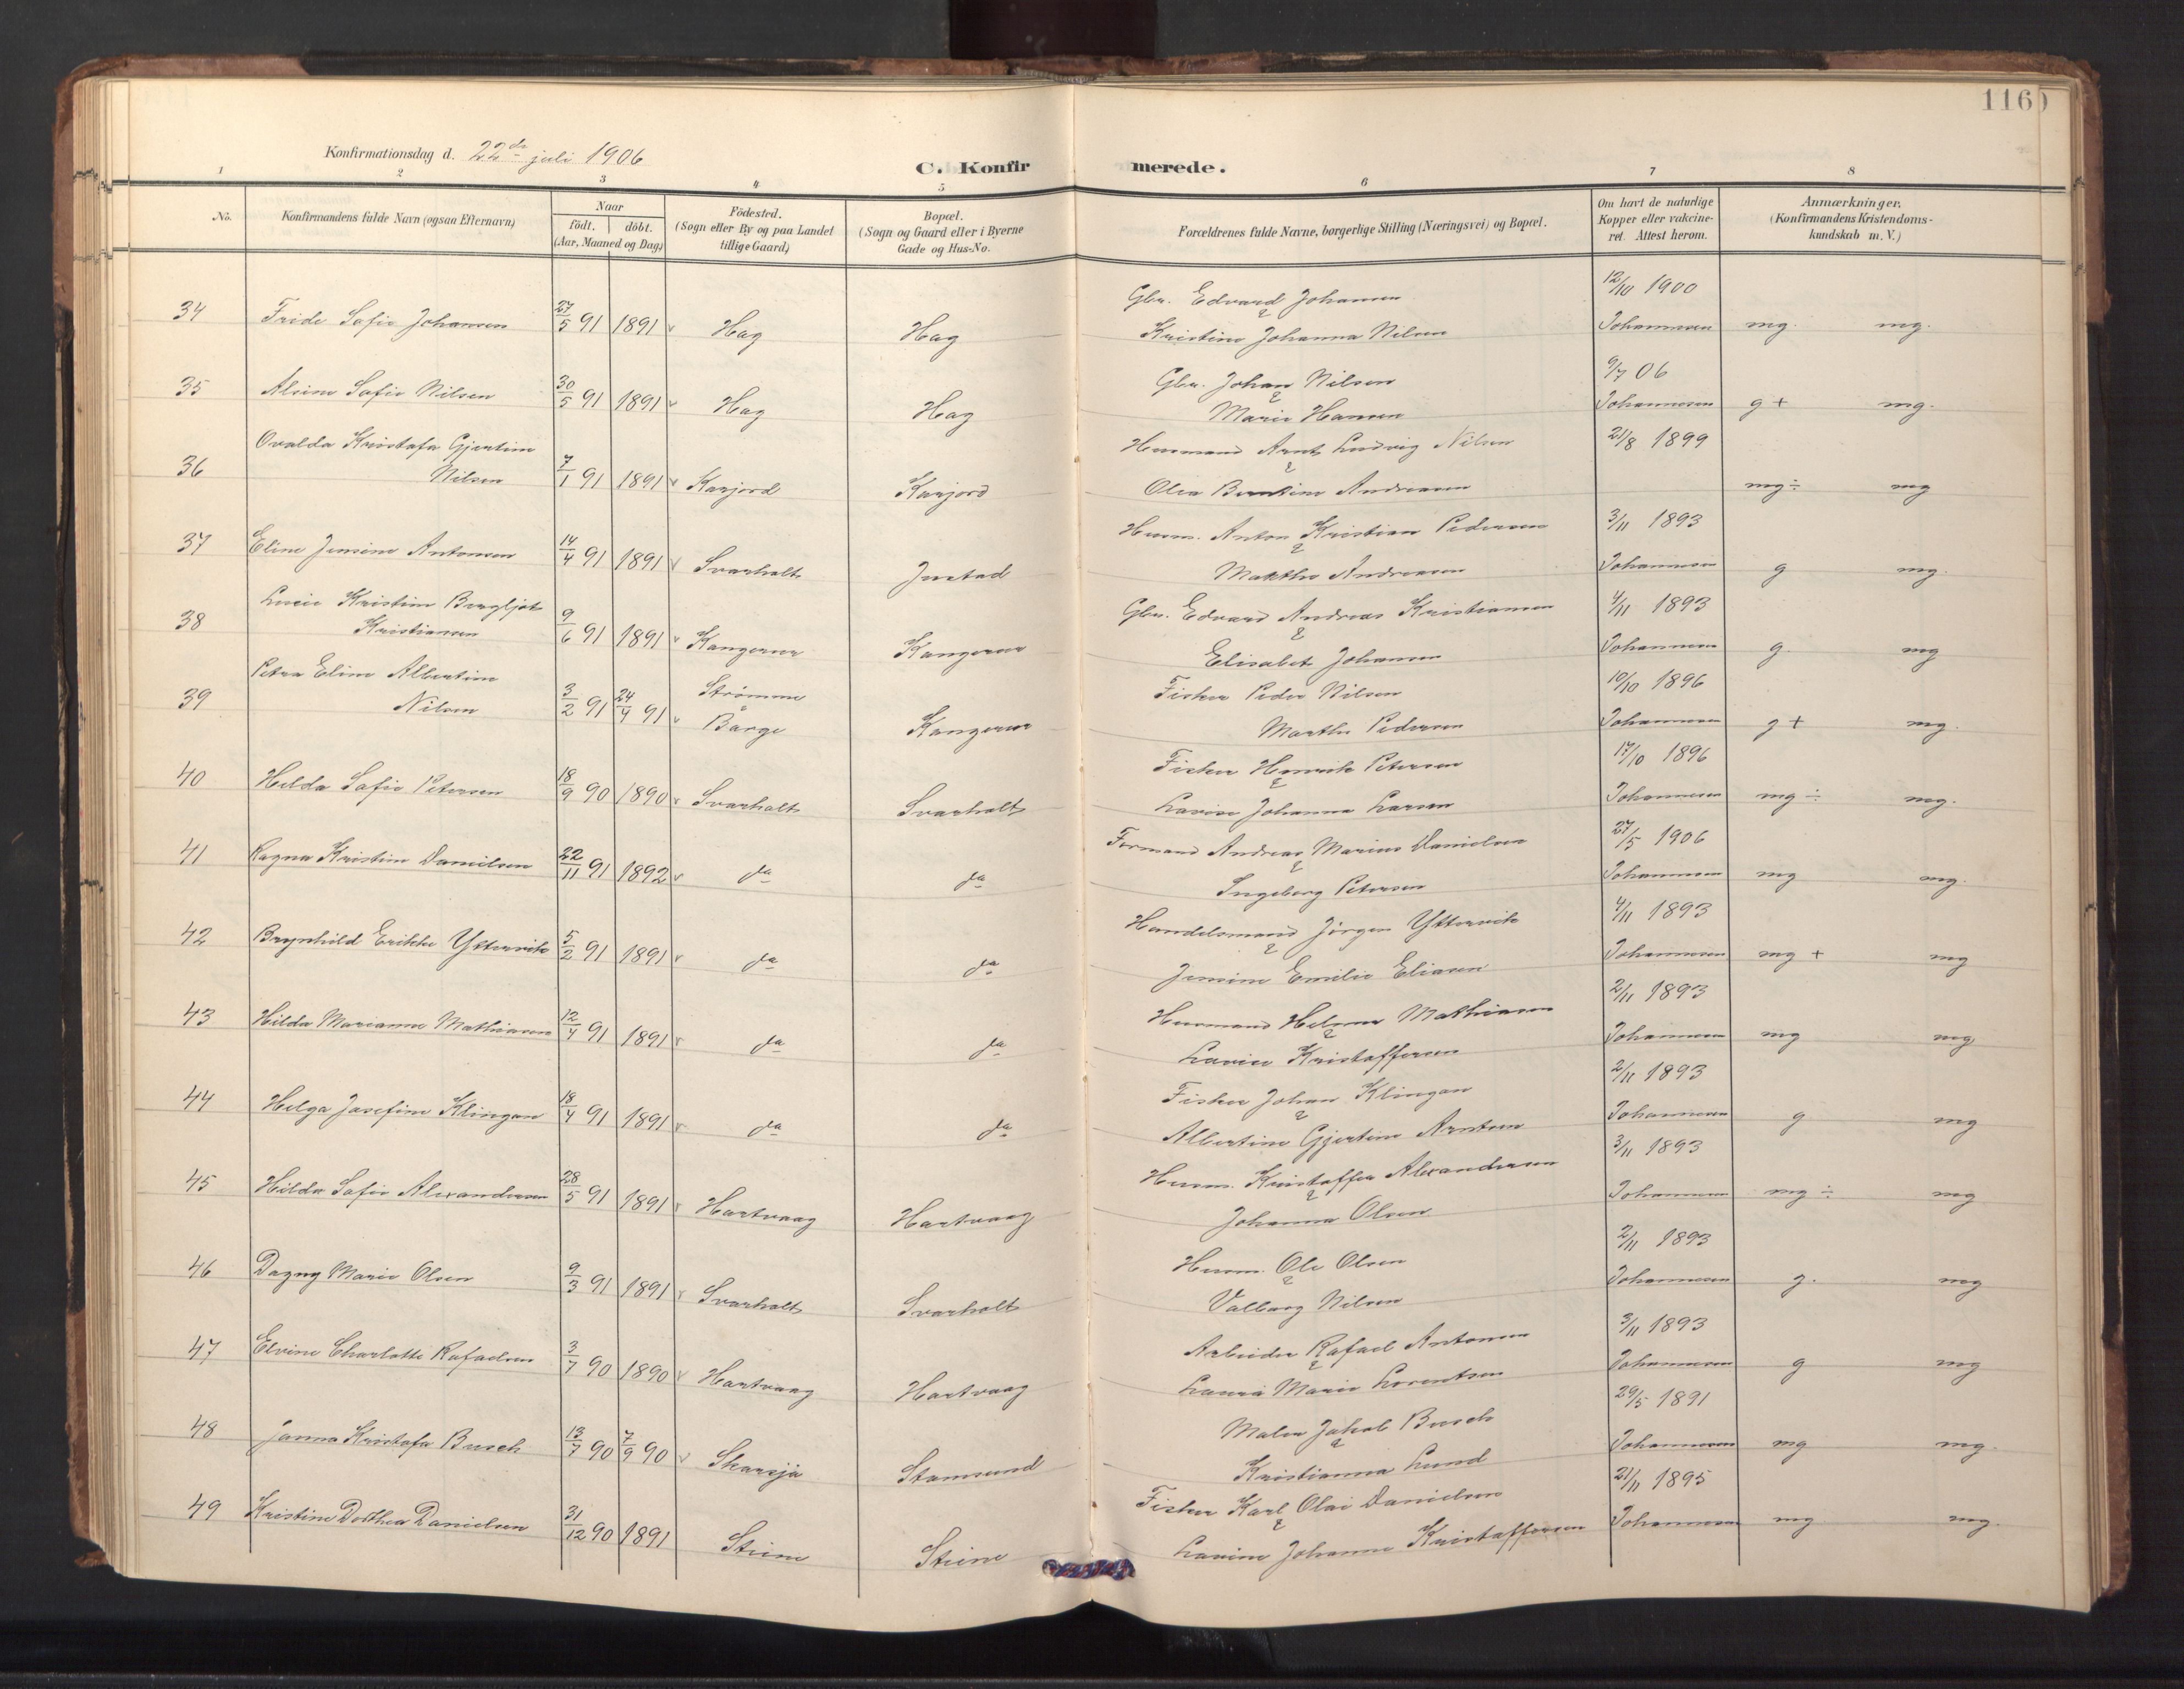 116
Konfirmationsdag d. 22de juli 1906
C. Konfirmerede.
1 2 3 4 5 6 7 8
No. Konfirmandens fulde Navn (ogsaa Efternavn) Naar födt. döbt. (Aar, Maaned og Dag) Födested. (Sogn eller By og paa Landet tillige Gaard) Bopæl. (Sogn og Gaard eller i Byerne Gade og Hus-No. Forældrenes fulde Navne, borgerlige Stilling (Næringsvei) og Bopæl. Om havt de naturlige Kopper eller vakcineret. Attest herom. Anmærkninger. (Konfirmandens Kristendomskundskab m. V.)
Gbr. Edvard Johansen 12/10 1900
34 Fride Sofie Johansen 27/5 91 1891 Hag Hag & Kristine Johanna Nilsen Johannesen mg. mg.
Gbr. Johan Nilsen 9/7 06
35 Alsine Sofie Nilsen 30/5 91 1891 Hag Hag & Marie Hansen Johannesen g+ mg.
Ovalda Kristofa Gjertine Husmand Arnt Ludvig Nilsen 21/8 1899
36 Nilsen 7/1 91 1891 Karjord Karjord & Olea Berntine Andreasen mg÷ mg
Husm. Anton Kristian Pedersen 3/11 1893
37 Eline Jensine Antonsen 14/4 91 1891 Svarholt Justad & Marthe Andreasen Johannesen g mg.
Lucie Kristine Bergljot Gbr. Edvard Andreas Kristiansen 4/11 1893
38 Kristiansen 9/6 91 1891 Kangerur Kangerur & Elisabet Johansen Johannesen g. mg
Petra Eline Albertine Strømme Fisker Peder Nilsen 10/10 1896
39 Nilsen 3/2 91 24/4 91 Barge Kangerur Marthe Pedersen Johannesen g+ mg.
Fisker Henrik Petersen 17/10 1896
40 Hilda Sofie Petersen 18/9 90 1890 Svarholt Svarholt & Lavise Johanna Larsen Johannesen mg÷ mg.
Formand Andreas Marius Danielsen 27/5 1906
41 Ragna Kristine Danielsen 22/11 91 1892 da da & Ingeborg Petersen Johannesen mg mg.
Handelsmand Jörgen Yttervik 4/11 1893
42 Brynhild Erikke Yttervik 5/2 91 1891 da da & Jensine Emilie Eliasen Johannesen mg+ mg
Husmand Helmer Mathiasen 2/11 1893
43 Hilda Marianne Mathiasen 12/4 91 1891 da da & Lavise Kristoffersen Johannesen mg mg
Fisker Johan Klingan 2/11 1893
44 Helga Josefine Klingan 18/4 91 1891 da da & Albertine Gjertine Arntsen Johannesen g mg
Husm. Kristoffer Alexandersen 3/11 1893
45 Hilda Sofie Alexandersen 28/5 91 1891 Hartvaag Hartvaag & Johanna Olsen Johannesen mg÷ mg
Husm. Ole Olsen 2/11 1893
46 Dagny Marie Olsen 9/3 91 1891 Svarholt Svarholt & Valborg Nilsen Johannesen g. mg
Arbeider Rafael Antonsen 3/11 1893
47 Elvine Charlotte Rafaelsen 3/7 90 1890 Hartvaag Hartvaag & Laura Marie Lorentsen Johannesen g mg
Maler Jakob Busch 29/5 1891
48 Janna Kristofa Busch 13/7 90 7/9 90 Skarsjø Stamsund & Kristianna Lund Johannesen mg mg.
Fisker Karl Olai Danielsen 21/11 1895
49 Kristine Dorthea Danielsen 31/12 90 1891 Stene Stene & Lavine Johanne Kristoffersen Johannesen mg mg.